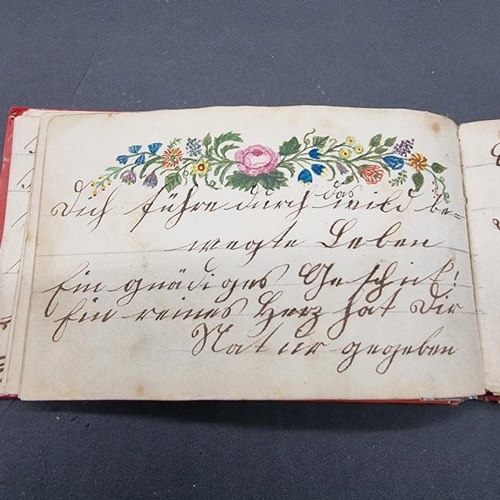 Dich führe durch das wild be=
wegte Leben
Ein gnädiges Geschick!
Ein reines Herz hat Dir
Natur gegeben